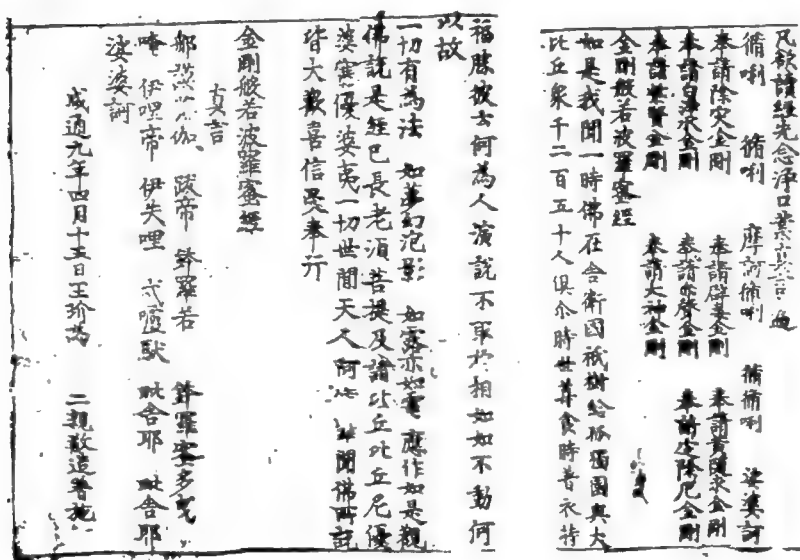 凡欲讀經先念淨口業真言一遍
脩唎　脩唎　摩訶脩唎　脩脩唎　娑婆訶
奉請除灾金剛　奉請辟毒金剛　奉請黃隨求金剛
奉請白淨水金剛　奉請赤聲金剛　奉請定除厄金剛
奉請紫賢金剛　奉請大神金剛
金剛般若波羅蜜經
如是我聞一時佛在舍衛國祇樹給孤獨園與大
比丘衆千二百五十人俱尒時世尊食時著衣持
福勝彼云何為人演說不取於相如如不動何
以故
一切有為法　如夢幻泡影　如露亦如電　應作如是觀
佛說是經已長老須菩提及諸比丘比丘尼優
婆塞優婆夷一切世間天人阿脩　聞佛所說
皆大歡喜信受奉行
金剛般若波羅蜜經
真言
那謨　伽　跋帝　鉢羅若　鉢羅蜜多曳
唵　伊哩帝　伊失哩　戍嚧馱　毗舍耶　毗舍耶
娑婆訶
咸通九年四月十五日王玠為　二親敬造普施